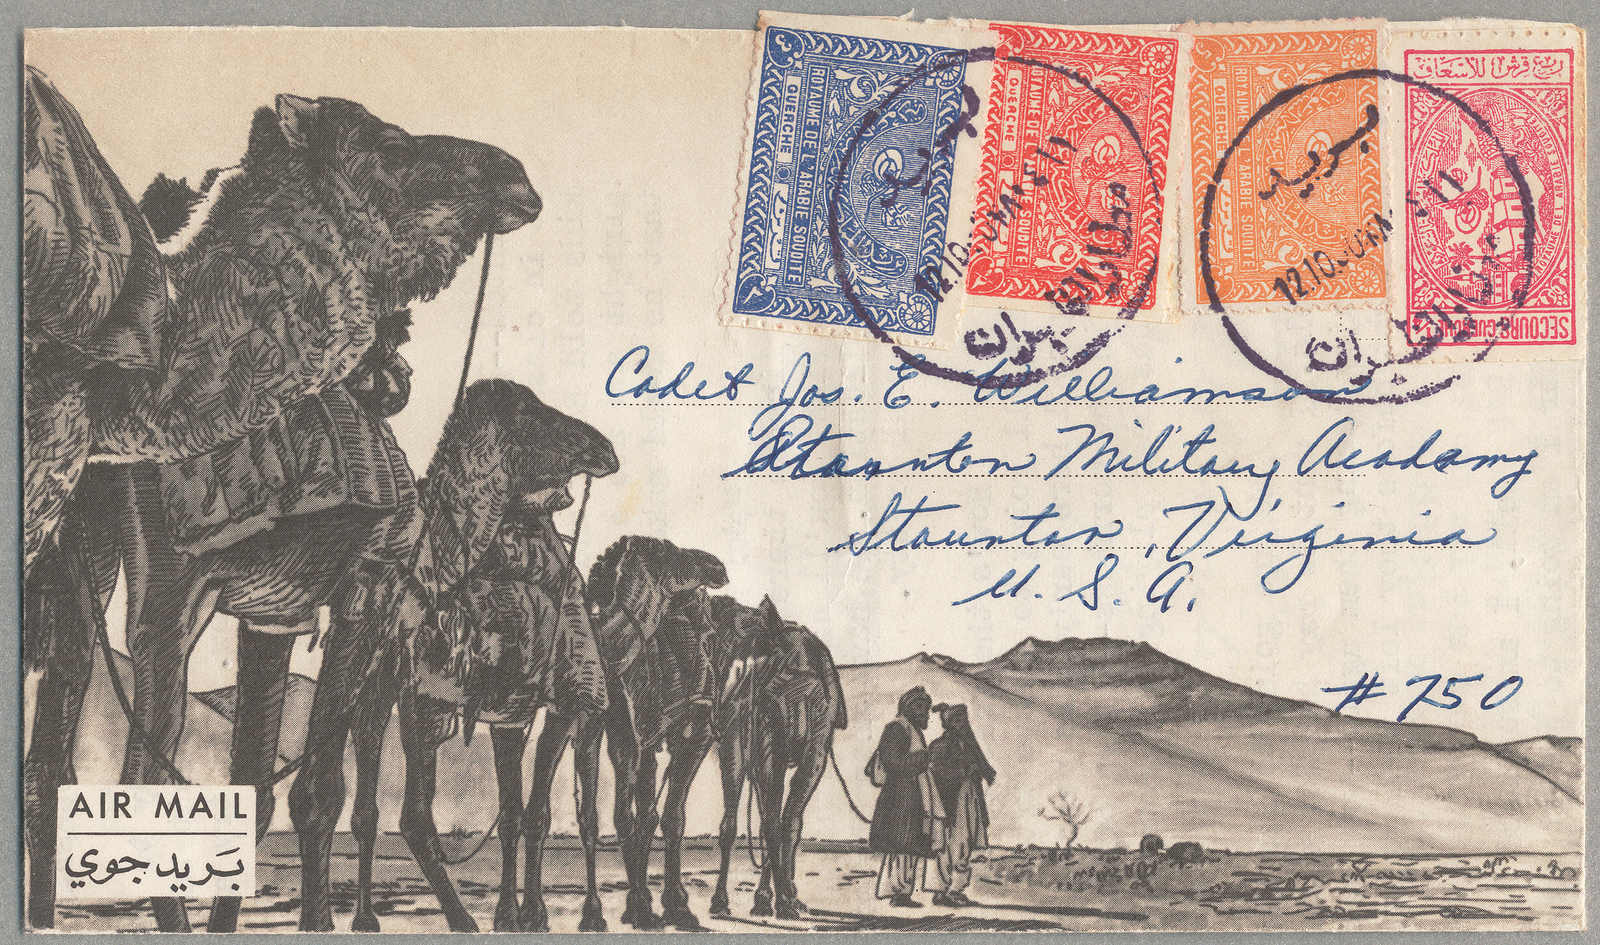 ROYAUME DE L'ARABIE SOUDITE
GUERCHE
ROYAUME DE L'ARABIE SOUDITE
GUERCHE
ROYAUME DE L'ARABIE SOUDITE
GUERCHE
ربع قرش للإسعاف
ROYAUME DE L'ARABIE SOUDITE
SECOURS GUERCHE
بريد
الظهران
بريد
الظهران
Cadet Jos. E. Williamson
Staunton Military Academy
Staunton, Virginia
U. S. A.
# 750
AIR MAIL
بَريد جوي